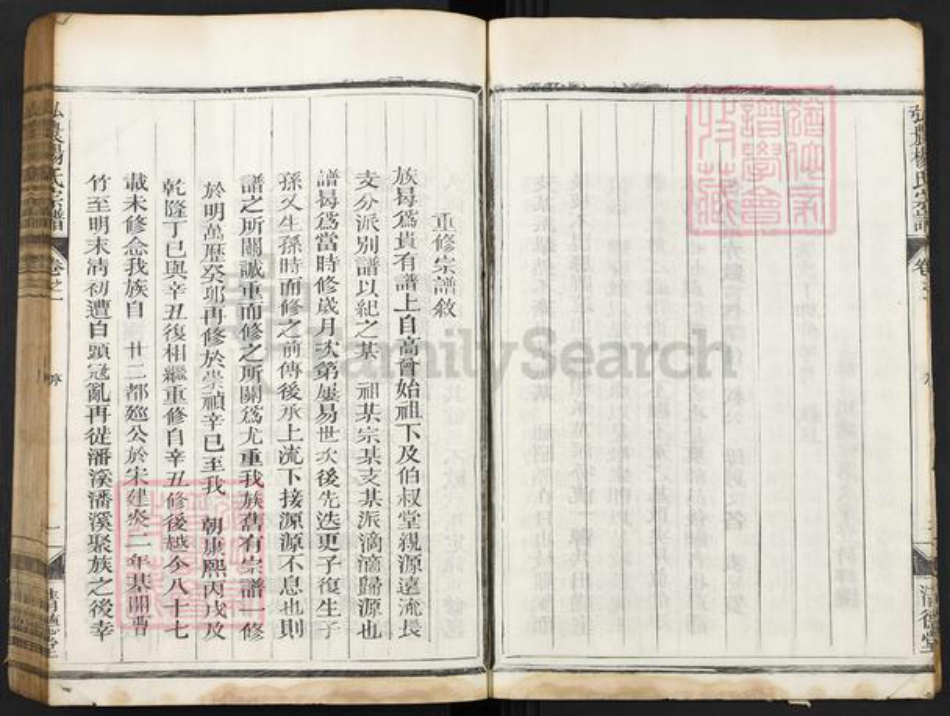 重修宗譜敘
族曷為貴有譜上自高曾始祖下及伯叔堂親源遠流長
支分派別譜以紀之某 祖某宗某支某派滴滴歸源也
譜曷為當時修歲月次第屢易世次後先迭更子復生子
孫又生孫時而修之前傳後承上流下接源源不息也則
譜之所關誠重而修之所關為尤重我族舊有宗譜一修
於明萬歷癸卯再修於崇禎辛巳至我 朝康熙丙戌及
乾隆丁巳與辛丑復相繼重修自辛丑修後越今八十七
載未修念我族自 廿二都 公於宋建炎二年基開曹
竹至明末清初遭白頭寇亂再徙潘溪潘溪聚族之後幸
弘農楊氏宗譜
卷之一
序
一
清德堂
弘農楊氏宗譜
卷之一
清德堂
譜學會
收藏
FamilySearch